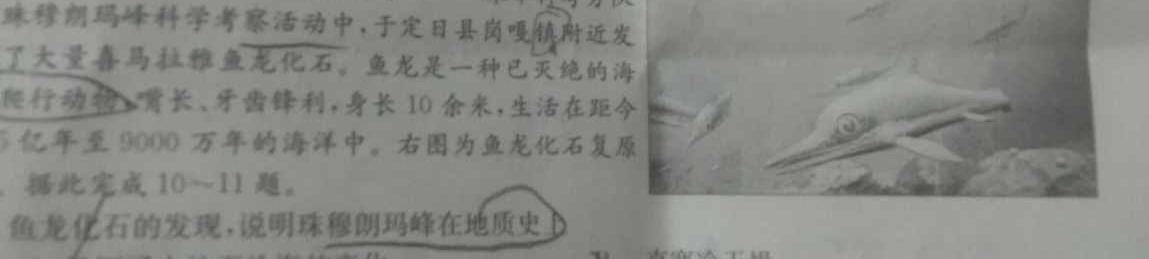 珠穆朗玛峰科学考察活动中,于定日县岗嘎镇附近发
了大量喜马拉雅鱼龙化石。鱼龙是一种已灭绝的海
爬行动物,嘴长、牙齿锋利,身长 10 余米,生活在距今
亿年至 9000 万年的海洋中。右图为鱼龙化石复原
。据此完成 10~11 题。
鱼龙化石的发现,说明珠穆朗玛峰在地质史上